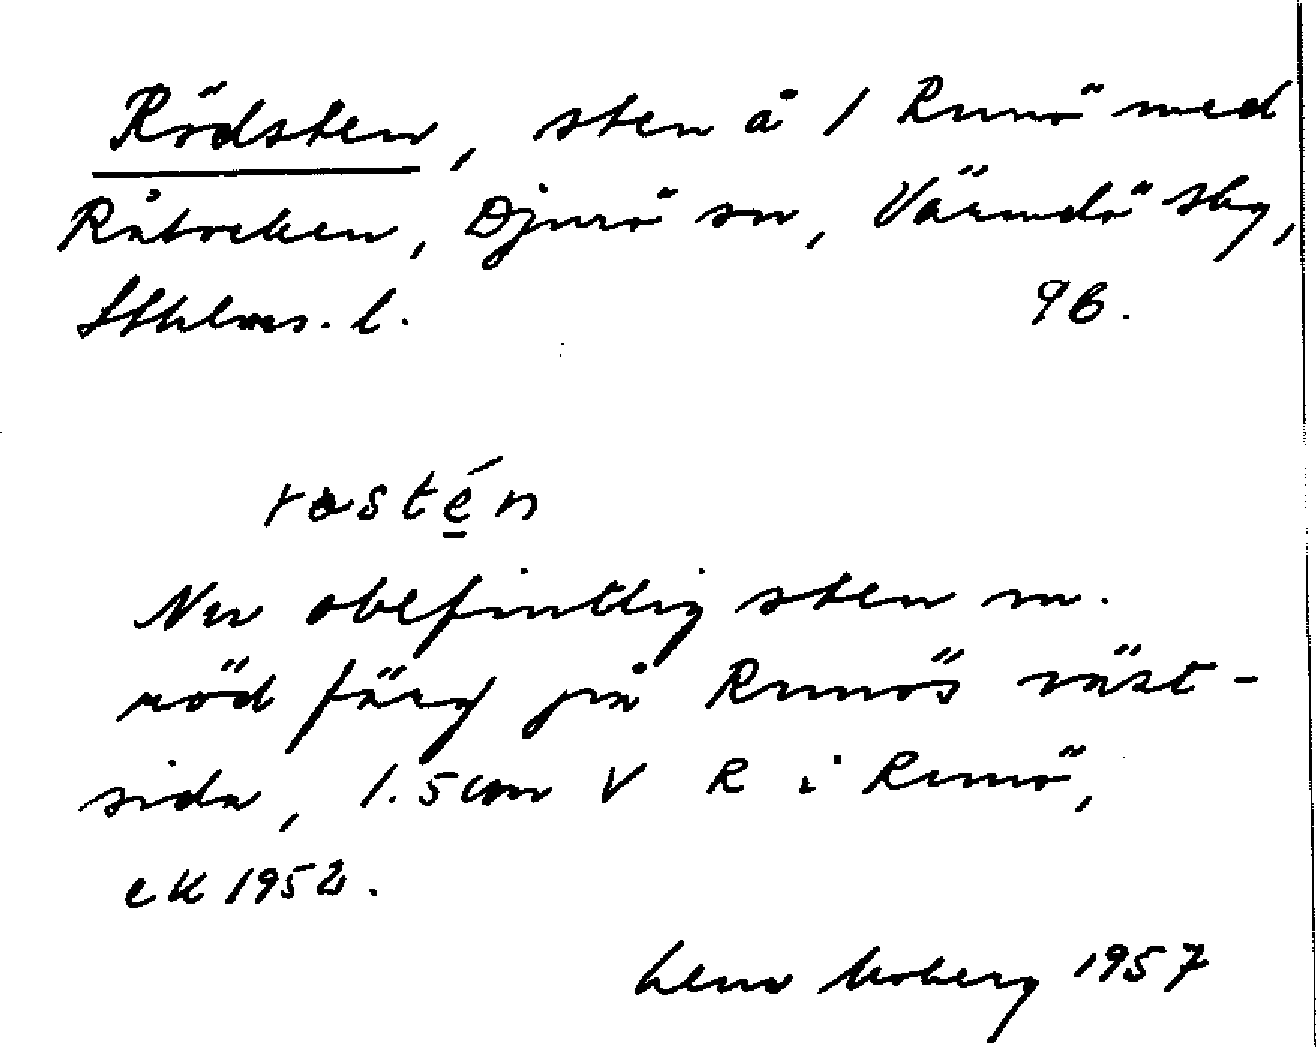 Rödsten, sten å 1 Runö med
Råbocken, Djurö sn, Värmdö sbg,
Sthlms. l. 9B.
rɷstén
Nu obefintlig sten m.
röd färg på Runös väst-
sida, 1.5 cm V R i Runö,
ek 1952.
Lena Moberg 1957